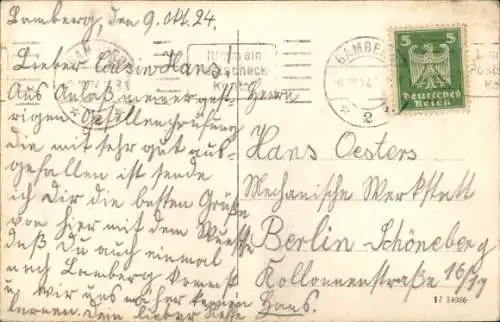 Bamberg, den 9. Okt. 24.
Lieber Cousin Hans!
Aus Anlaß meiner gest-
rigen Gesellenprüfung
die mir sehr gut aus-
gefallen ist sende
ich Dir die besten Grüße
von hier mit dem Wunsche
daß Du auch einmal
nach Bamberg kommst
u. wir uns näher kennen
lernen. Dein lieber Vetter
Hans.
BAMBERG
Nimm ein
Postscheck-
Konto
BAMBE
9.10.24
2
5 5
Deutsches
Reich
Herrn
Hans Oesters
Mechanische Werkstatt
Berlin Schöneberg
Kollonnenstraße 16/19
17 34986